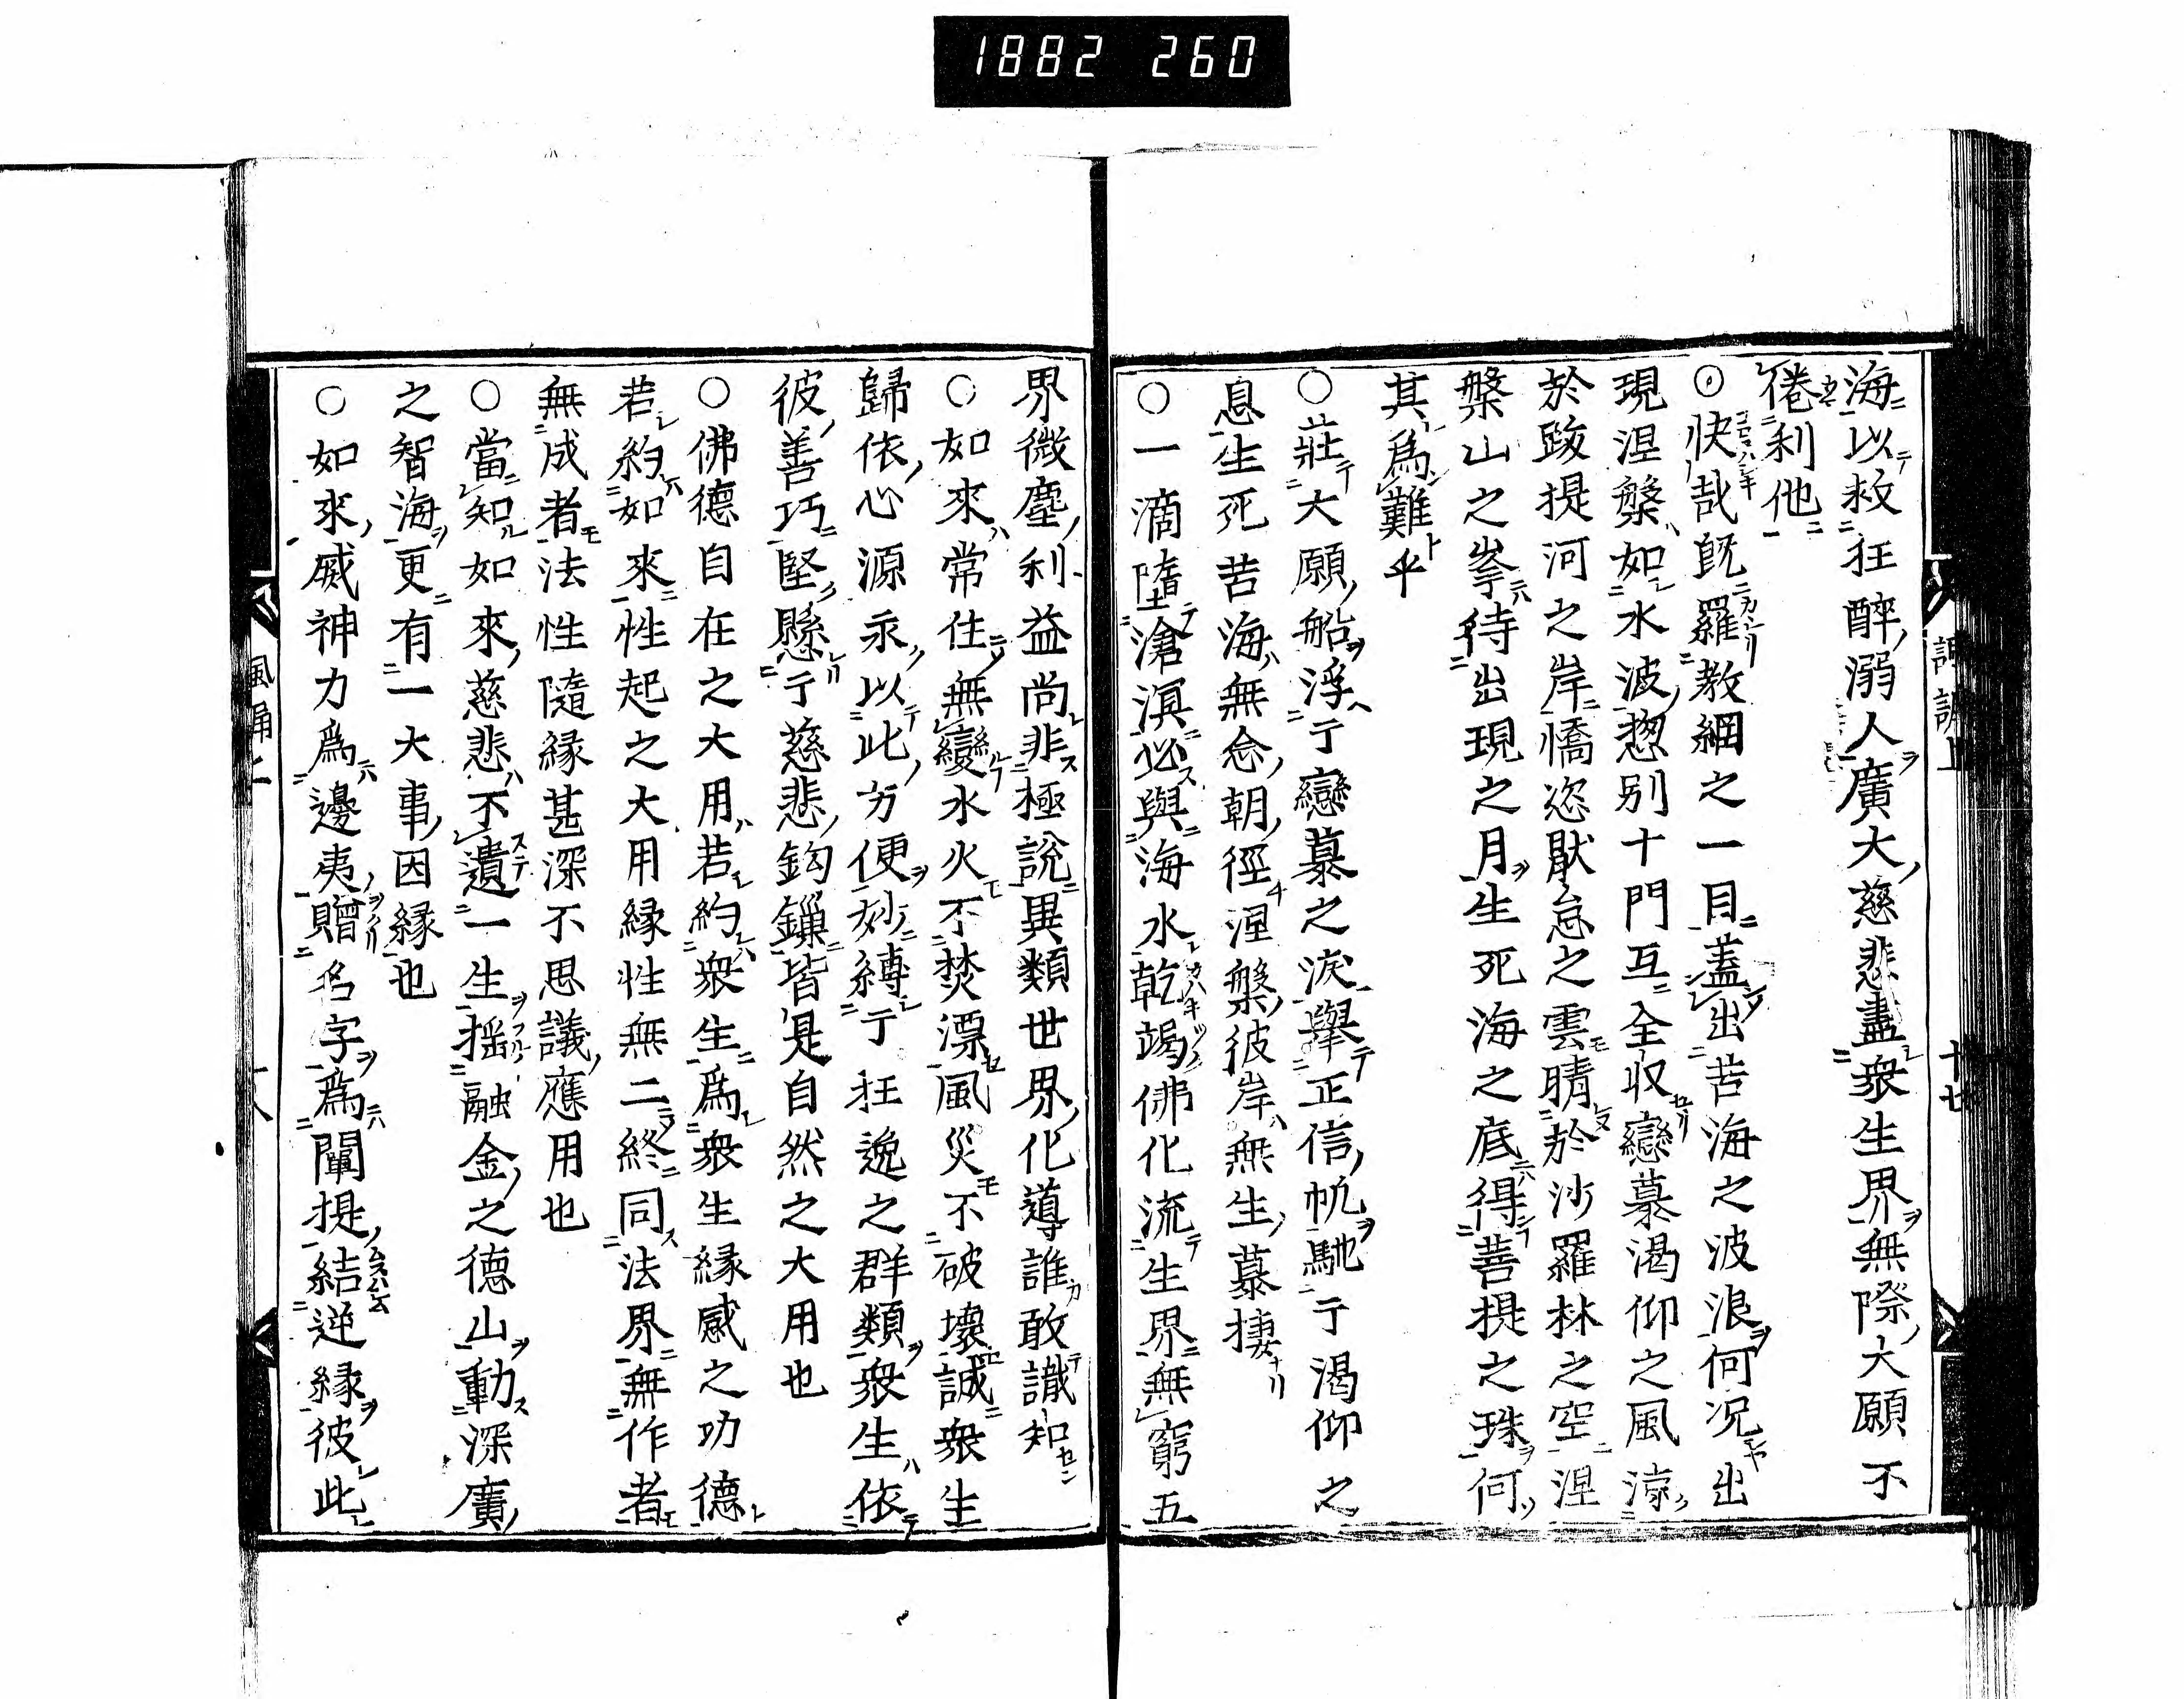 1882 260
海以救狂醉溺人廣大慈悲盡衆生界無際大願不
倦利他
◎快哉既羅教網之一目蓋出苦海之波浪何況出
現涅槃如水波惣別十門互全収戀慕渇仰之風涼
於跋提河之岸憍恣猒怠之雲晴於沙羅林之空涅
槃山之峯待出現之月生死海之底得菩提之珠何
其爲難乎
○莊大願船浮于戀慕之淚擧正信帆馳于渇仰之
息生死苦海無念朝徑涅槃彼岸無生暮捿
○一滴墮滄溟必與海水乾竭佛化流生界無窮五
界微塵利益尚非極說異類世界化導誰敢識知
○如來常住無變水火不焚漂風災不破壞誠衆生
歸依心源永以此方便妙縛于狂逸之群類衆生依
彼善巧堅懸于慈悲鈎鏁皆是自然之大用也
○佛德自在之大用若約衆生爲衆生緣感之功德
若約如來性起之大用緣性無二終同法界無作者
無成者法性隨緣甚深不思議應用也
○當知如來慈悲不遺一生搖融金之德山動深廣
之智海更有一大事因緣也
○如來威神力爲邊夷贈名字爲闡提結逆緣彼此